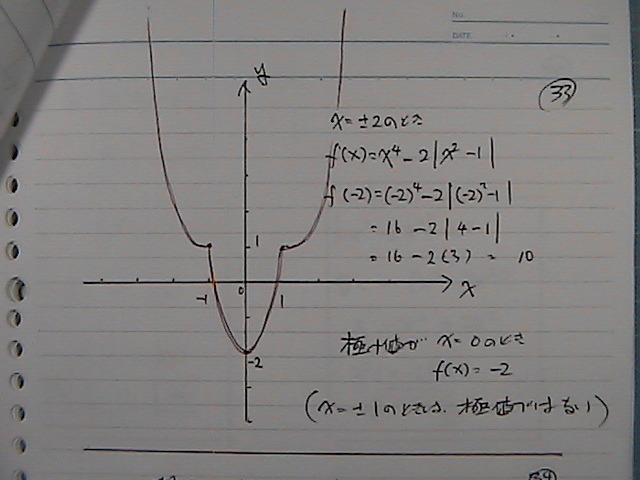 No.
DATE
33
y
x=±2のとき
f(x)=x⁴-2|x²-1|
f(-2)=(-2)⁴-2|(-2)²-1|
=16-2|4-1|
=16-2(3)=10
1
-1 0 1 x
-2
極小値が x=0のとき
f(x)=-2
(x=±1のときは、極値ではない)
34